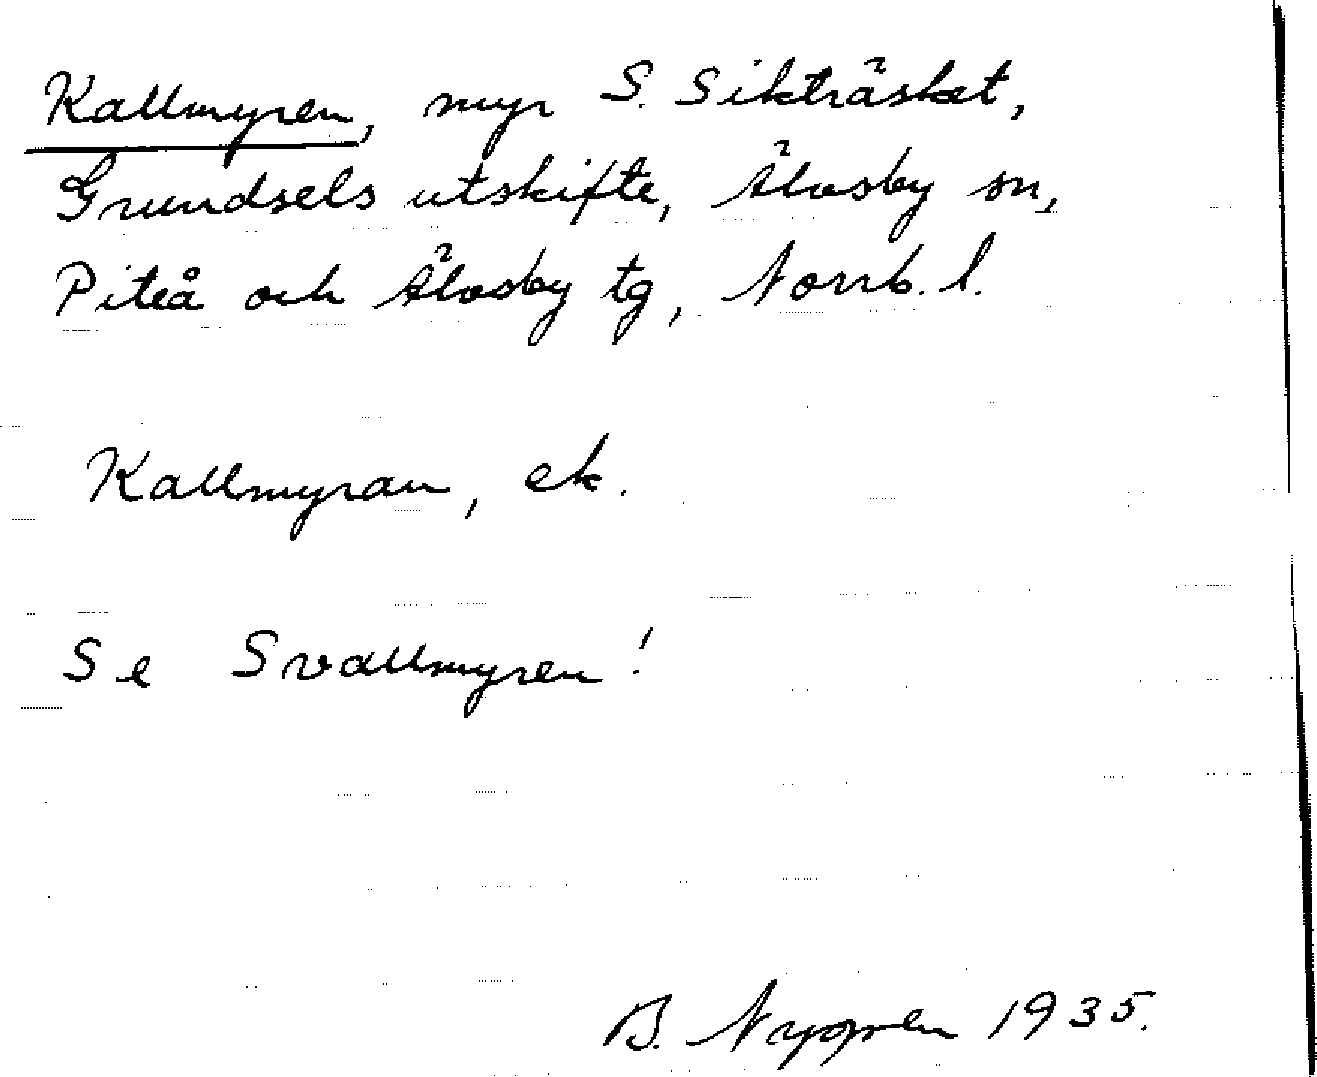 Kallmyren, myr S. Sikträsket,
Grundsels utskifte, Älvsby sn,
Piteå och Älvsby tg, Norrb. l.
Kallmyran, ek.
Se Svallmyren!
B. 1935.